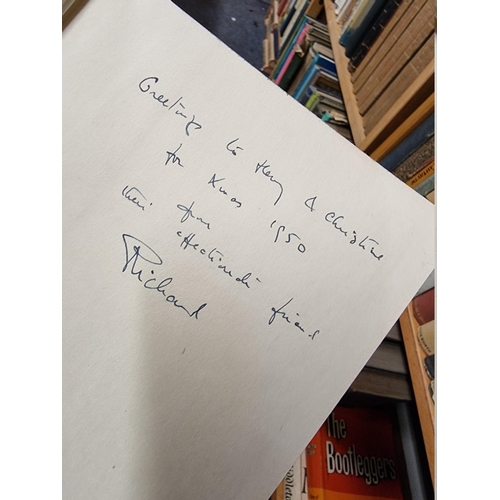 Greetings to Henry & Christine
for Xmas 1950
from
affectionate friend
Richard
The
Bootleggers